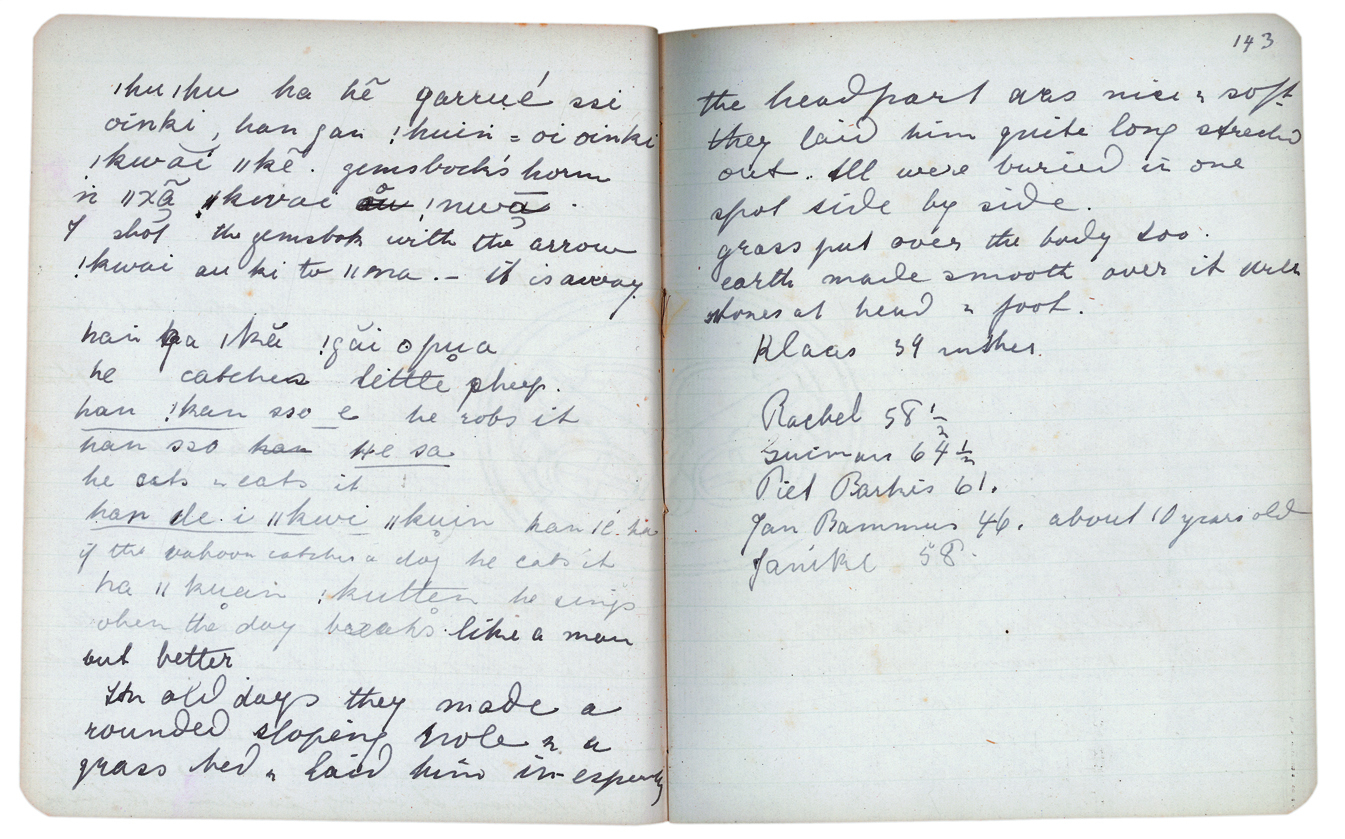 ǀhu ǀhu ha hẽ garrué ssi
oinki, han gau !huin = oi oinki
ǀkwāi ǁkẽ. gemsbock's horn
n ǁxã ǁkwai !nwā.
I shot the gemsbok with the arrow
!kwai au ki to ǁma. – it is away
han ha ǀkă !găi opua
he catches little sheep.
han !kan sso e he robs it
han sso han He sa
he eats n eats it
han de i ǁkwi ǁkuin han ǀé. ha
if the bahoon catches a dog he eats it
ha ǁkuain !kutten he sings
when the day breaks like a man
but better
In old days they made a
rounded sloping hole n a
grass bed n laid him in especially
143
the headpart was nice n soft
they laid him quite long streched
out. All were buried in one
spot side by side.
grass put over the body too.
earth made smooth over it with
stones at head n foot.
Klaas 59 inches.
Rachel 58 ½
Guiman 64 ½
Piet Barkis 61.
Jan Bammus 46. about 10 years old
Janikl 58.